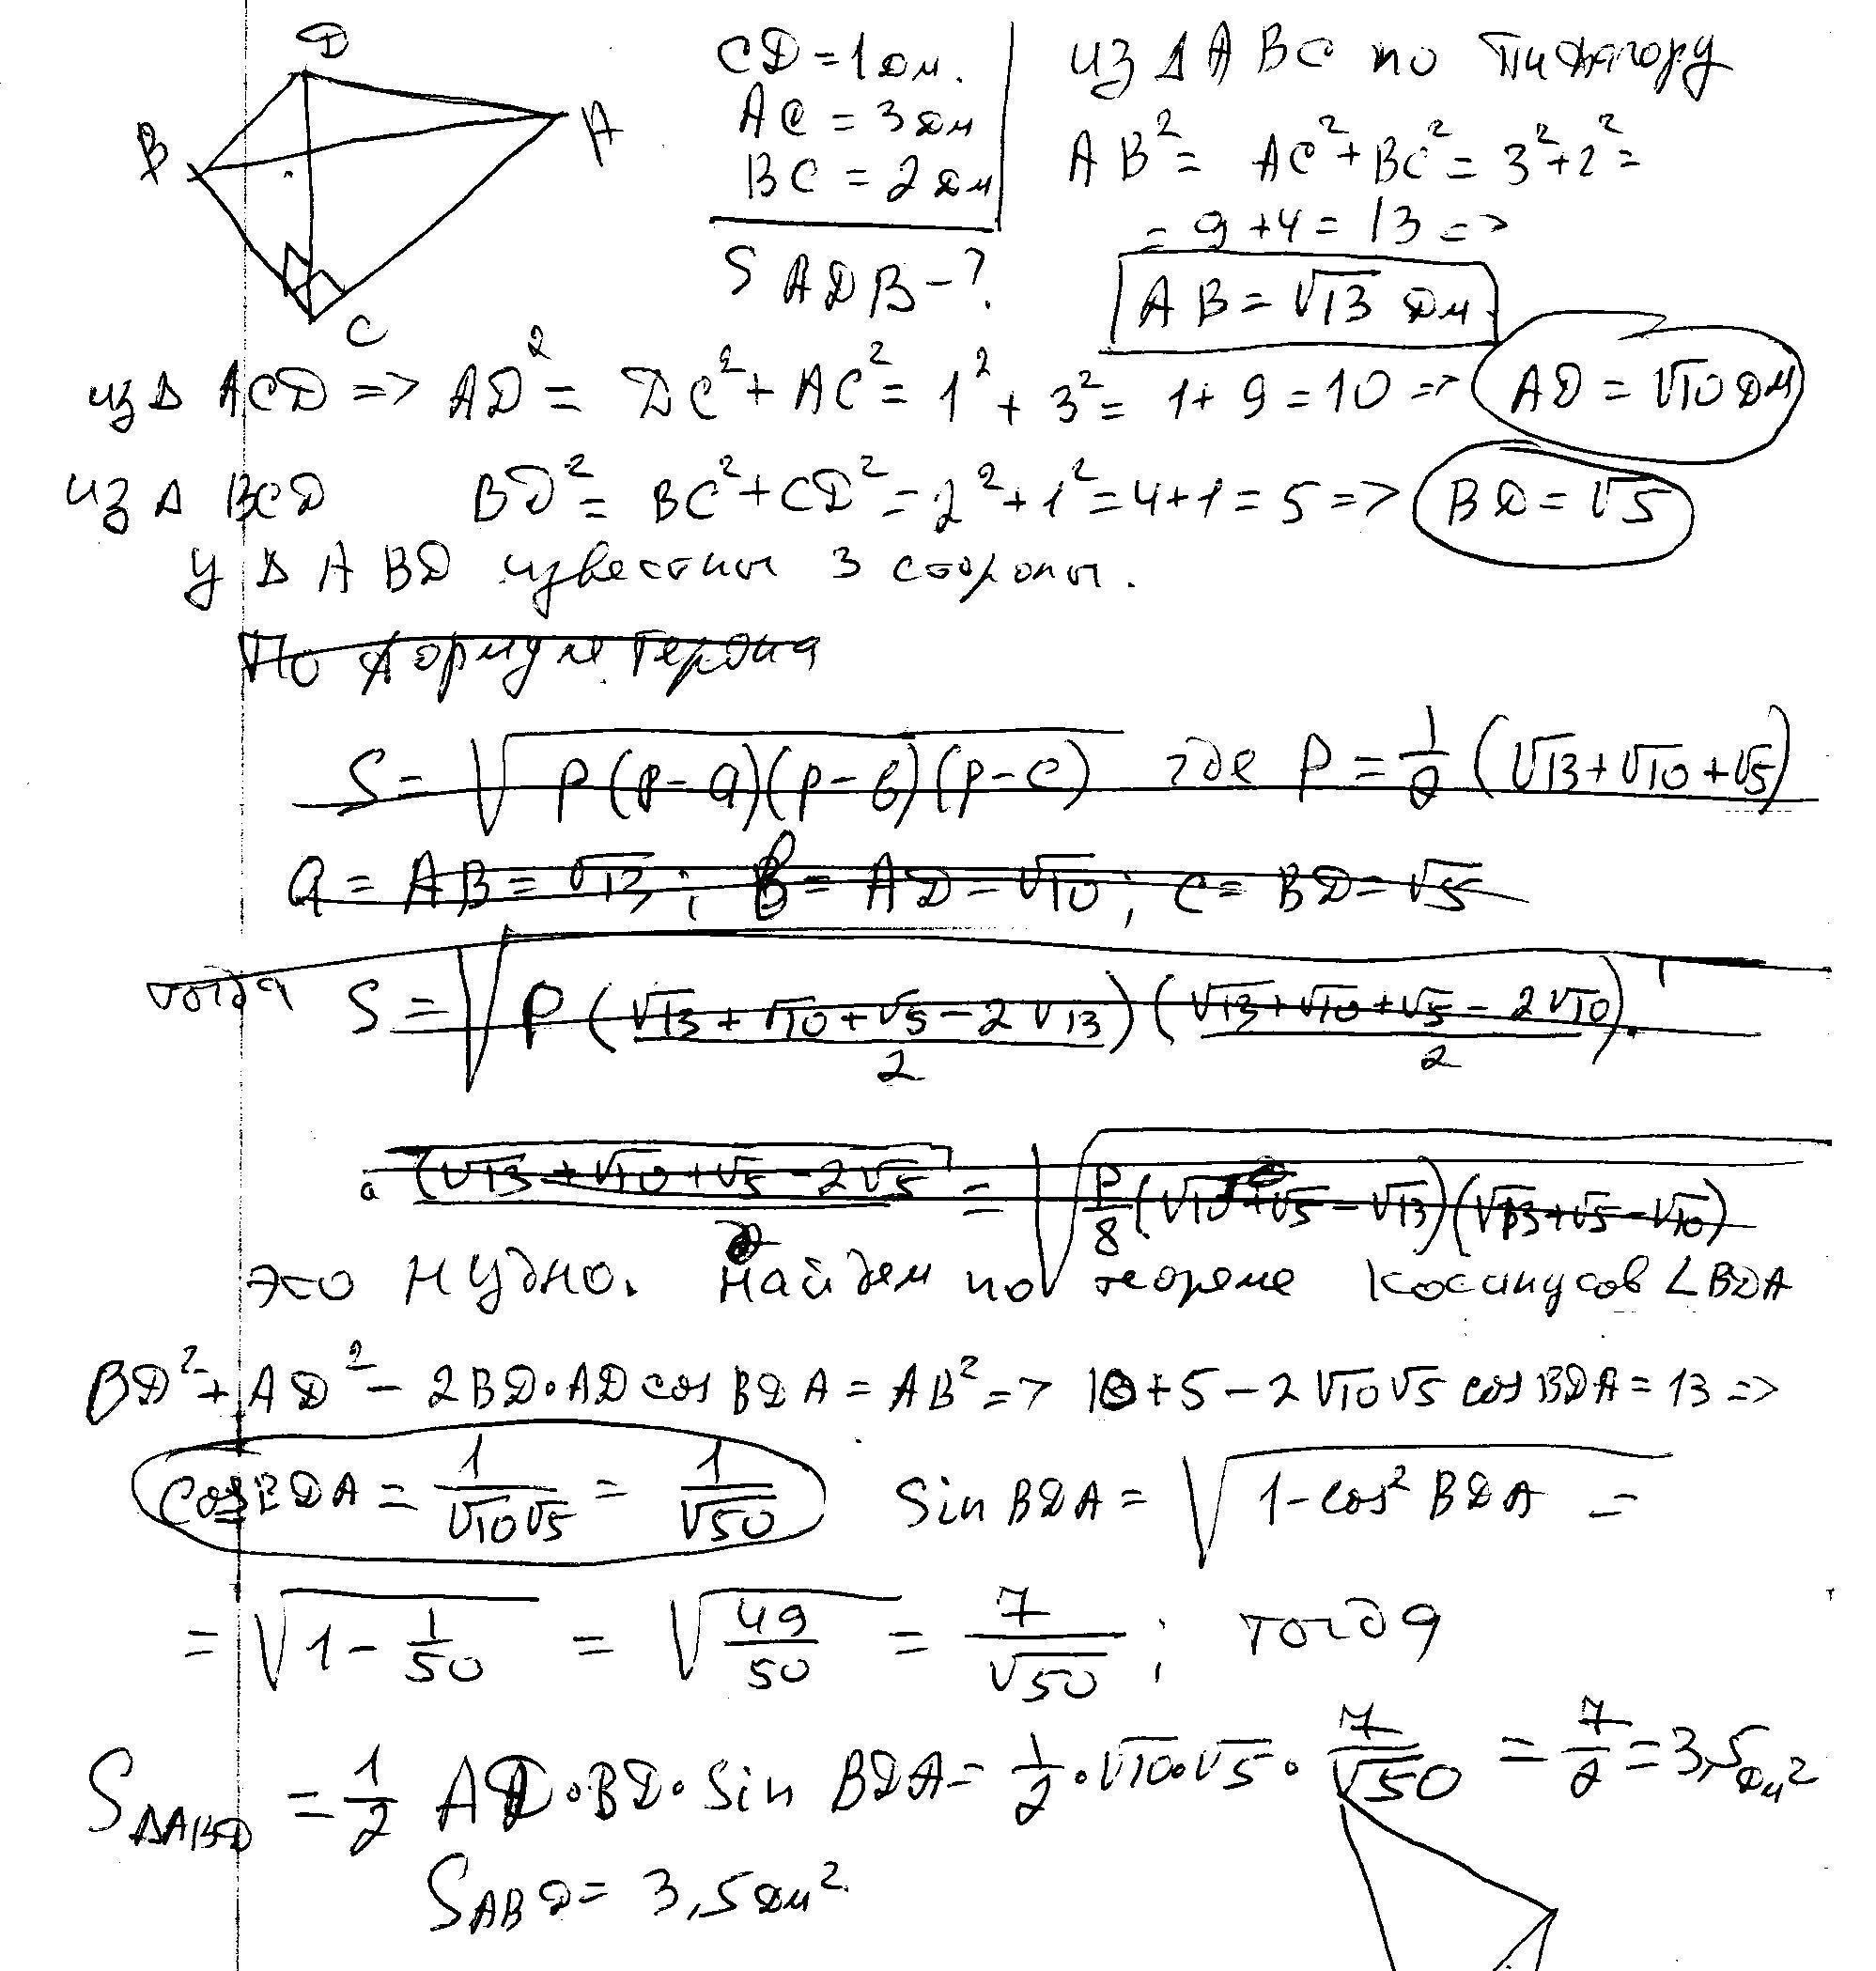 D
B
A
C
CD = 1 дм.
AC = 3 дм
BC = 2 дм
S ADB - ?
из Δ ABC по Пифагору
AB² = AC² + BC² = 3² + 2² =
= 9 + 4 = 13 =>
AB = √13 дм.
из Δ ACD => AD² = DC² + AC² = 1² + 3² = 1 + 9 = 10 => AD = √10 дм
из Δ BCD BD² = BC² + CD² = 2² + 1² = 4 + 1 = 5 => BD = √5
У Δ ABD известны 3 стороны.
По формуле Герона
S = √P(P-a)(P-в)(P-c) где P = 1/2 (√13 + √10 + √5)
a = AB = √13; в = AD = √10; c = BD = √5
тогда S = √P ((√13 + √10 + √5 - 2√13)/2) ((√13 + √10 + √5 - 2√10)/2) ·
· (√13 + √10 + √5 - 2√5)/2 = √P/8 (√10 + √5 - √13)(√13 + √5 - √10)
это нудно. Найдем по теореме косинусов ∠BDA
BD² + AD² - 2BD·AD cos BDA = AB² => 10 + 5 - 2√10√5 cos BDA = 13 =>
cos BDA = 1/(√10√5) = 1/√50 sin BDA = √1 - cos² BDA =
= √1 - 1/50 = √49/50 = 7/√50 ; тогда
SΔABD = 1/2 AD·BD·sin BDA = 1/2 · √10·√5 · 7/√50 = 7/2 = 3,5 дм²
SABD = 3,5 дм²